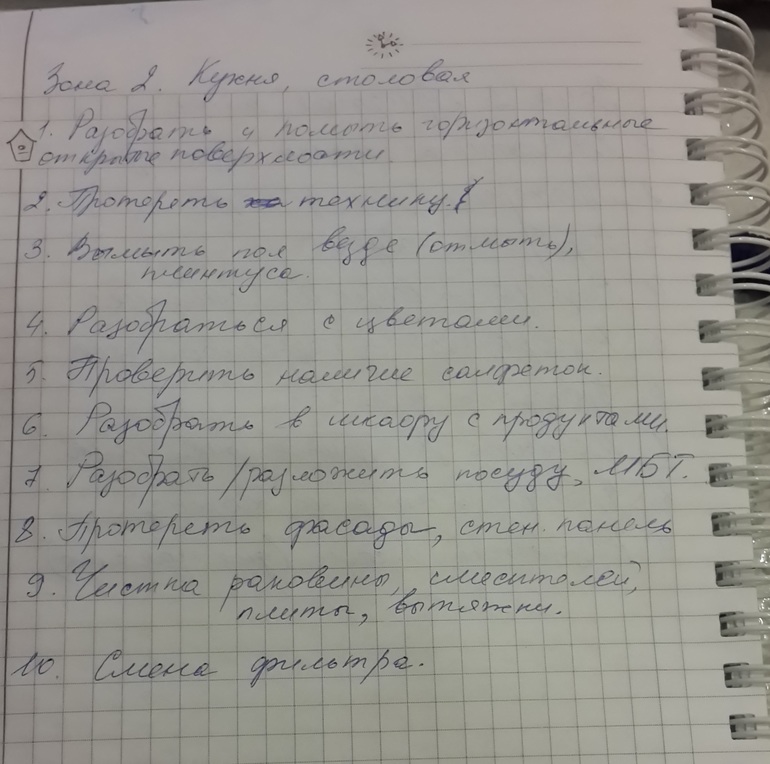 Зона 2. Кухня, столовая
1. Разобрать и помыть горизонтальные
открытые поверхности
2. Протереть технику.
3. Вымыть пол везде (отмыть),
плинтуса.
4. Разобраться с цветами.
5. Проверить наличие салфеток.
6. Разобрать в шкафу с продуктами.
7. Разобрать/разложить посуду, МБТ.
8. Протереть фасады, стен. панель
9. Чистка раковины, смесителей,
плиты, вытяжки.
10. Смена фильтра.